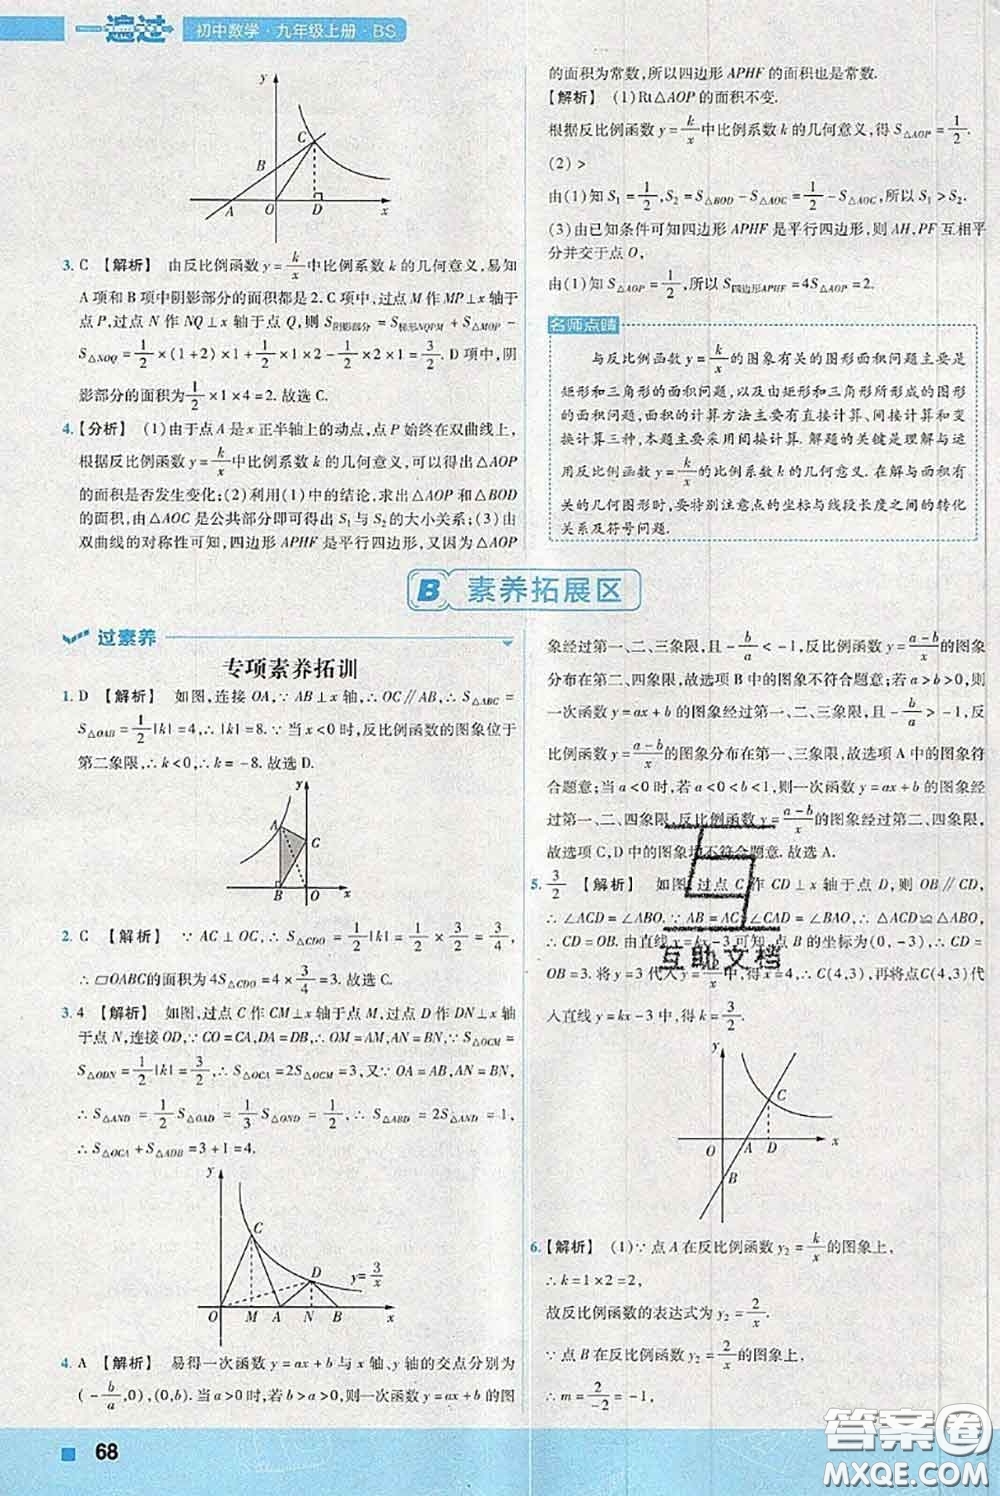 一遍过 初中数学·九年级上册·BS
y
C
B
A O D x
3. C 【解析】 由反比例函数 y=k/x 中比例系数 k 的几何意义,易知
A 项和 B 项中阴影部分的面积都是 2. C 项中,过点 M 作 MP⊥x 轴于
点 P,过点 N 作 NQ⊥x 轴于点 Q,则 S阴影部分=S梯形NQPM+S△MOP−
S△NOQ=1/2×(1+2)×1+1/2×2−1/2×2=3/2. D 项中,阴
影部分的面积为 1/2×1×4=2. 故选 C.
4.【分析】 (1)由于点 A 是 x 正半轴上的动点,点 P 始终在双曲线上,
根据反比例函数 y=k/x 中比例系数 k 的几何意义,可以得出△AOP
的面积是否发生变化;(2)利用(1)中的结论,求出△AOP 和△BOD
的面积,由△AOC 是公共部分即可得出 S1 与 S2 的大小关系;(3)由
双曲线的对称性可知,四边形 APHF 是平行四边形,又因为△AOP
的面积为常数,所以四边形 APHF 的面积也是常数.
【解析】 (1)Rt△AOP 的面积不变.
根据反比例函数 y=k/x 中比例系数 k 的几何意义,得 S△AOP=1/2.
(2) >
由(1)知 S1=1/2,S2=S△BOD−S△AOC=1/2−S△AOC,所以 S1>S2.
(3)由已知条件可知四边形 APHF 是平行四边形,则 AH,PF 互相平
分并交于点 O,
由(1)知 S△AOP=1/2,所以 S四边形APHF=4S△AOP=2.
名师点睛
与反比例函数 y=k/x 的图象有关的图形面积问题主要是
矩形和三角形的面积问题,以及由矩形和三角形所形成的图形
的面积问题,面积的计算方法主要有直接计算、间接计算和变
换计算三种,本题主要采用间接计算. 解题的关键是理解与运
用反比例函数 y=k/x 的比例系数 k 的几何意义. 在解与面积有
关的几何图形时,要特别注意点的坐标与线段长度之间的转化
关系及符号问题.
B 素养拓展区
过素养
专项素养拓训
1. D 【解析】 如图,连接 OA,∵AB⊥x 轴,∴OC∥AB,∴S△ABC=
S△OAB=1/2|k|=4,∴|k|=8. ∵当 x<0 时,反比例函数的图象位于
第二象限,∴k<0,∴k=−8. 故选 D.
y
A
C
B O x
2. C 【解析】 ∵AC⊥OC,∴S△CDO=1/2|k|=1/2×3/2=3/4,
∴▱OABC的面积为 4S△CDO=4×3/4=3. 故选 C.
3. 4 【解析】 如图,过点 C 作 CM⊥x 轴于点 M,过点 D 作 DN⊥x 轴
于点 N,连接 OD,∵OC=CA,DA=DB,∴OM=AM,AN=BN,∵S△OCM=
S△ODN=1/2|k|=3/2,∴S△OCA=2S△OCM=3,又∵OA=AB,AN=BN,
∴S△AND=1/2S△OAD=1/3S△OND=1/3×3/2=1/2,∴S△ABD=2S△AND=1,
∴S△OCA+S△ADB=3+1=4.
y
C
D y=3/x
O M A N B x
4. A 【解析】 易得一次函数 y=ax+b 与 x 轴、y 轴的交点分别为
(−b/a,0),(0,b). 当 a>0 时,若 b>a,则一次函数 y=ax+b 的图
象经过第一、二、三象限,且 −b/a<−1,反比例函数 y=(a−b)/x 的图象
分布在第二、四象限,故选项 B 中的图象不符合题意;若 a>b>0,则
一次函数 y=ax+b 的图象经过第一、二、三象限,且 −b/a>−1,反
比例函数 y=(a−b)/x 的图象分布在第一、三象限,故选项 A 中的图象符
合题意;当 a<0 时,若 a<0<b<1,则一次函数 y=ax+b 的图象经
过第一、二、四象限,反比例函数 y=(a−b)/x 的图象经过第二、四象限,
故选项 C,D 中的图象均不符合题意. 故选 A.
5. 3/2 【解析】 如图,过点 C 作 CD⊥x 轴于点 D,则 OB∥CD,
∴∠ACD=∠ABO. ∵AB=AC,∠CAD=∠BAO,∴△ACD≌△ABO,
∴CD=OB. 由直线 y=kx−3 可知,点 B 的坐标为(0,−3),∴CD=
OB=3. 将 y=3 代入 中,得 x=4,∴C(4,3),再将点 C(4,3)代
入直线 y=kx−3 中,得 k=3/2.
互助文档
y
C
O A D x
B
6.【解析】 (1)∵点 A 在反比例函数 y2=k/x 的图象上,
∴k=1×2=2,
故反比例函数的表达式为 y2=2/x.
∵点 B 在反比例函数 y2=2/x 的图象上,
∴m=2/−2=−1,
68
答案圈
MXQE.COM